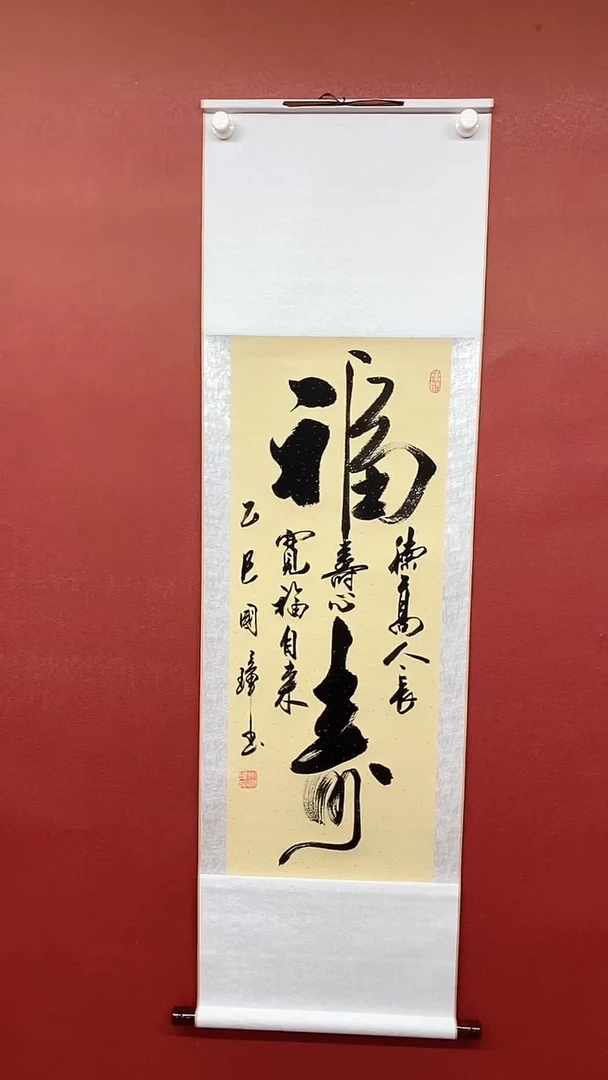 福
壽
德高人長
壽心
寬福自来
乙巳國璋书